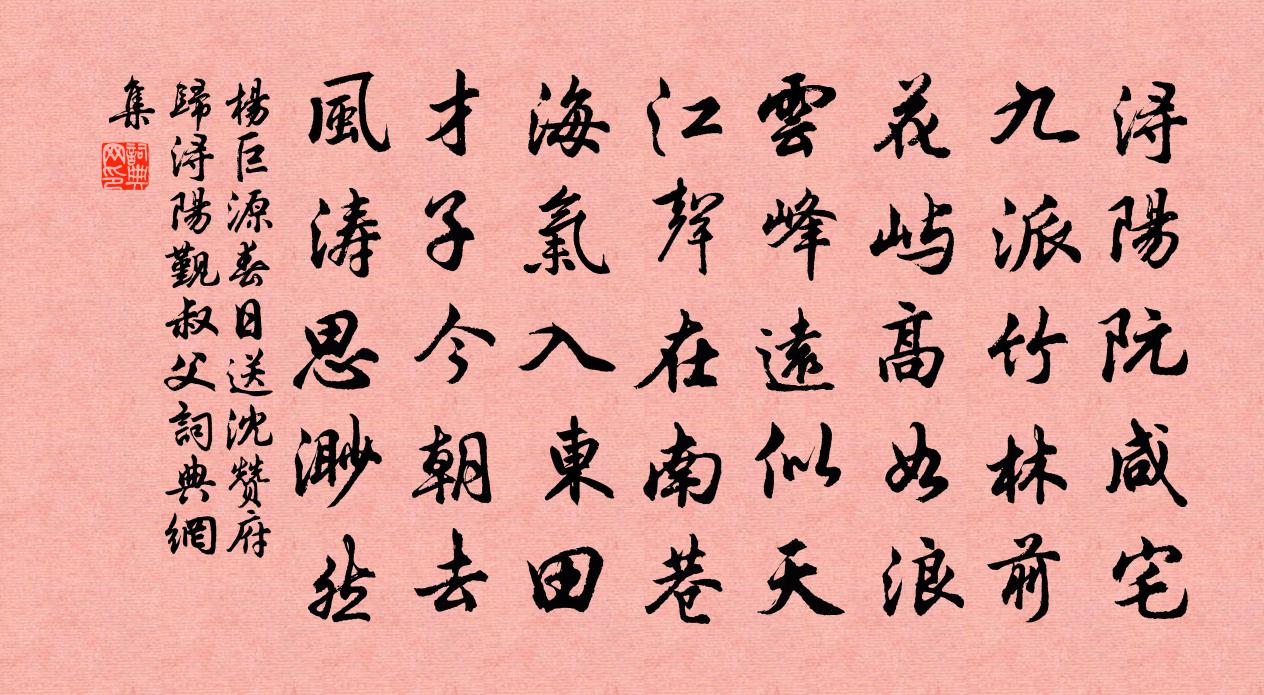 浔陽阮咸宅
九派竹林前
花屿高如浪
雲峰遠似天
江聲在南巷
海氣入東田
才子今朝去
風涛思渺然
楊巨源春日送沈赞府
歸浔陽觐叔父詞典網
集
詞典网印